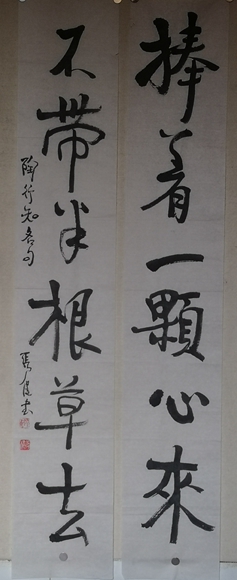 捧着一顆心來
不带半根草去
陶行知名句